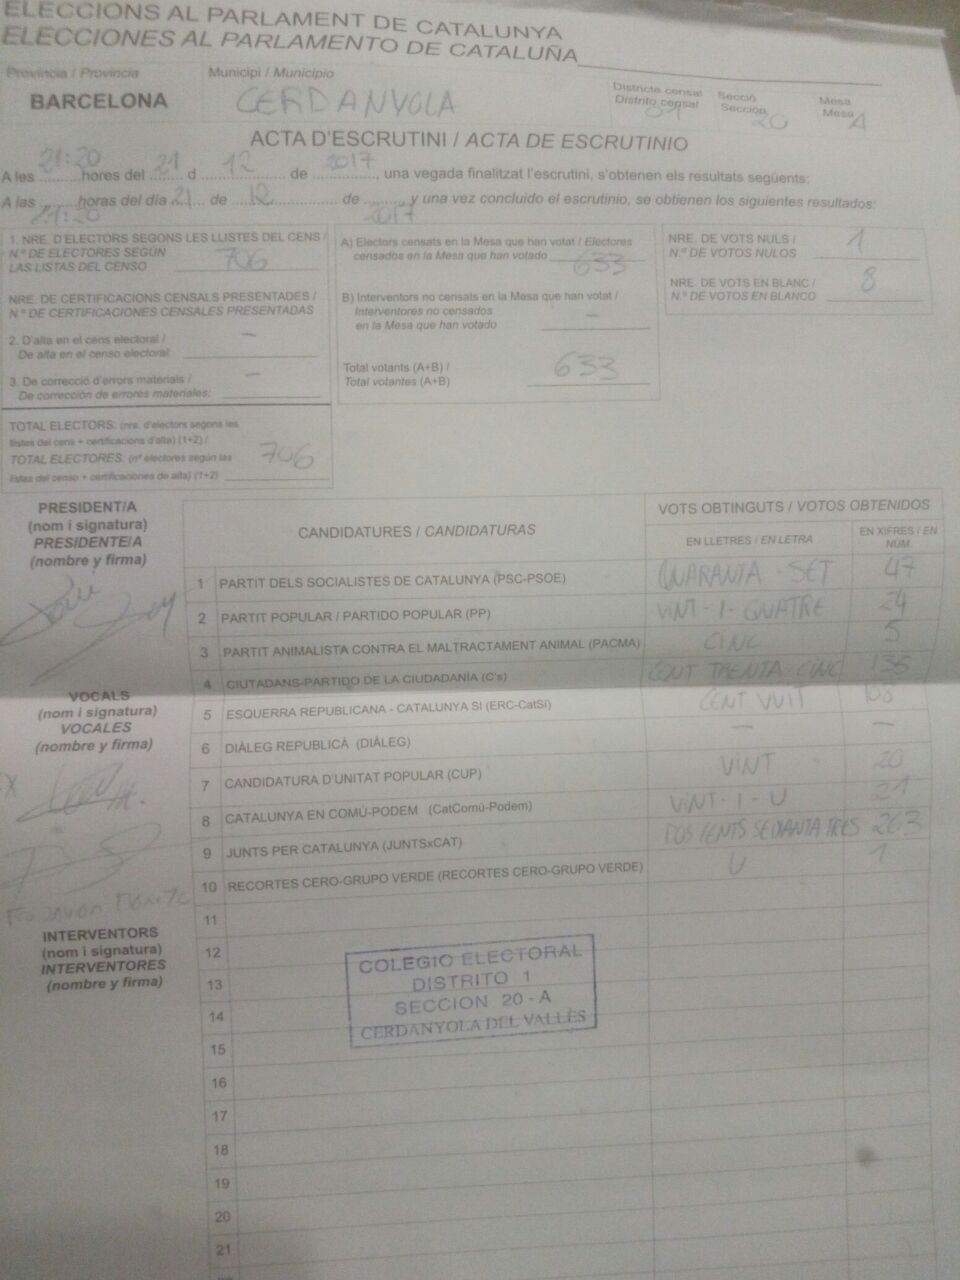 ELECCIONS AL PARLAMENT DE CATALUNYA
ELECCIONES AL PARLAMENTO DE CATALUÑA
Província / Provincia
BARCELONA
Municipi / Municipio
CERDANYOLA
Districte censal
Distrito censal
01
Secció
Sección
20
Mesa
Mesa
A
ACTA D'ESCRUTINI / ACTA DE ESCRUTINIO
A les 21:20 hores del 21 d 12 de 2017, una vegada finalitzat l'escrutini, s'obtenen els resultats següents:
A las 21:20 horas del día 21 de 12 de 2017 y una vez concluido el escrutinio, se obtienen los siguientes resultados:
1. NRE. D'ELECTORS SEGONS LES LLISTES DEL CENS /
N.º DE ELECTORES SEGÚN
LAS LISTAS DEL CENSO 706
NRE. DE CERTIFICACIONS CENSALS PRESENTADES /
N.º DE CERTIFICACIONES CENSALES PRESENTADAS
2. D'alta en el cens electoral /
De alta en el censo electoral: –
3. De correcció d'errors materials /
De corrección de errores materiales: –
TOTAL ELECTORS: (nre. d'electors segons les
llistes del cens + certificacions d'alta) (1+2) /
TOTAL ELECTORES: (nº electores según las
listas del censo + certificaciones de alta) (1+2) 706
A) Electors censats en la Mesa que han votat / Electores
censados en la Mesa que han votado 633
B) Interventors no censats en la Mesa que han votat /
Interventores no censados
en la Mesa que han votado –
Total votants (A+B) /
Total votantes (A+B) 633
NRE. DE VOTS NULS /
N.º DE VOTOS NULOS 1
NRE. DE VOTS EN BLANC /
N.º DE VOTOS EN BLANCO 8
PRESIDENT/A
(nom i signatura)
PRESIDENTE/A
(nombre y firma)
VOCALS
(nom i signatura)
VOCALES
(nombre y firma)
X
INTERVENTORS
(nom i signatura)
INTERVENTORES
(nombre y firma)
CANDIDATURES / CANDIDATURAS
VOTS OBTINGUTS / VOTOS OBTENIDOS
EN LLETRES / EN LETRA
EN XIFRES / EN NÚM.
1 PARTIT DELS SOCIALISTES DE CATALUNYA (PSC-PSOE) QUARANTA - SET 47
2 PARTIT POPULAR / PARTIDO POPULAR (PP) VINT - I - QUATRE 24
3 PARTIT ANIMALISTA CONTRA EL MALTRACTAMENT ANIMAL (PACMA) CINC 5
4 CIUTADANS-PARTIDO DE LA CIUDADANÍA (C's) CENT TRENTA CINC 135
5 ESQUERRA REPUBLICANA - CATALUNYA SÍ (ERC-CatSí) CENT VUIT 108
6 DIÀLEG REPUBLICÀ (DIÀLEG) – –
7 CANDIDATURA D'UNITAT POPULAR (CUP) VINT 20
8 CATALUNYA EN COMÚ-PODEM (CatComú-Podem) VINT - I - U 21
9 JUNTS PER CATALUNYA (JUNTSxCAT) DOS CENTS SEIXANTA TRES 263
10 RECORTES CERO-GRUPO VERDE (RECORTES CERO-GRUPO VERDE) U 1
11
12
13
14
15
16
17
18
19
20
21
COLEGIO ELECTORAL
DISTRITO 1
SECCION 20 - A
CERDANYOLA DEL VALLÈS